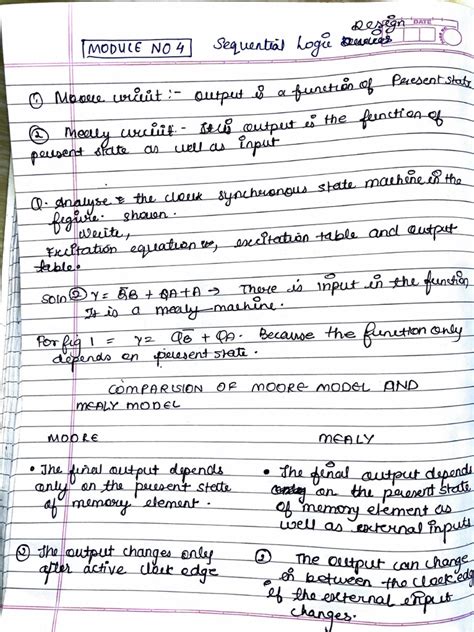 Design
DATE
MODULE NO 4 Sequential Logic Devices
① Moore circuit :- output is a function of Present state
② Mealy circuit - It is output is the function of
present state as well as input
Q. Analyse the clock synchronous state machine in the
figure. shown.
Write,
Excitation equation, excitation table and output
table.
Soln ② Y = Q̅B + QA + A → There is input in the function
It is a mealy machine.
For fig 1 = Y = QB̅ + QA. Because the function only
depends on present state.
COMPARISION OF MOORE MODEL AND
MEALY MODEL
MOORE MEALY
• The final output depends
only on the present state
of memory element.
• The final output depend
on the present state
of memory element as
well as external inputs
② The output changes only
after active clock edge
② The output can change
in between the clock edge
if the external input
changes.